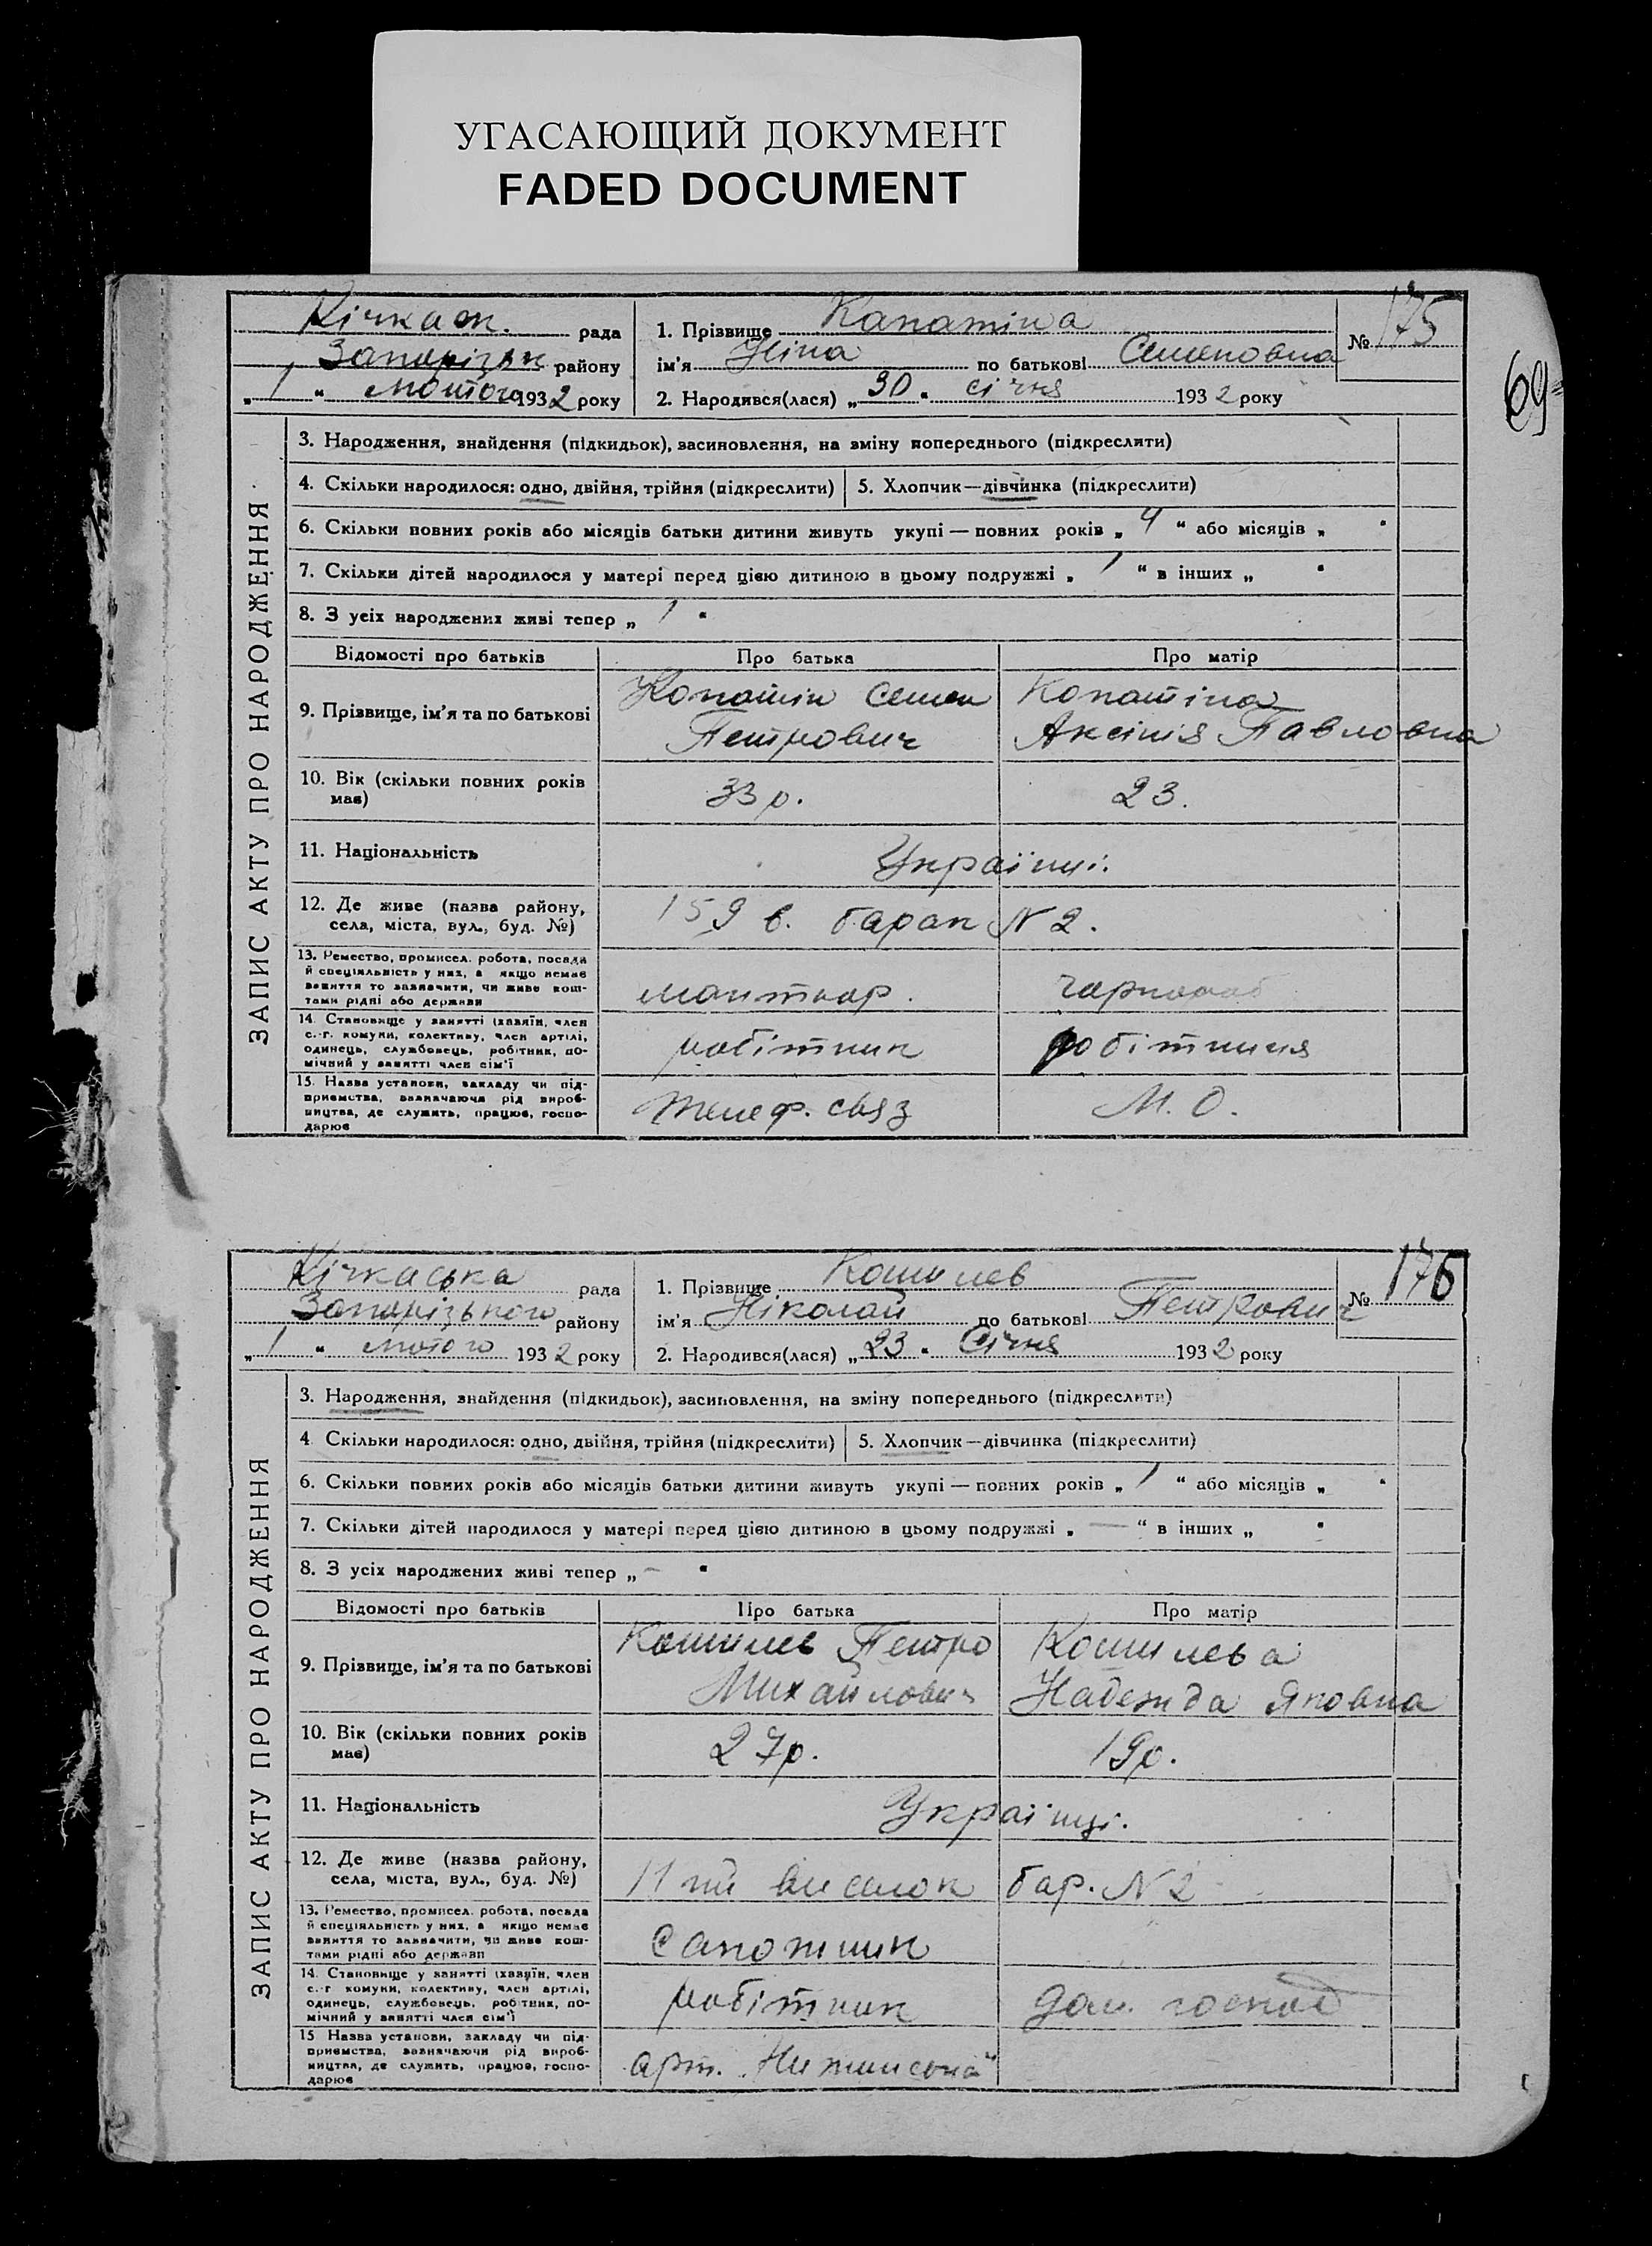 УГАСАЮЩИЙ ДОКУМЕНТ
FADED DOCUMENT
69
Кічкаськ. рада
Запорізьк району
„ 1 “ Лютого 1932 року
1. Прізвище Капатіна
ім'я Ніна по батькові Семеновна
2. Народився(лася) „ 30 “ січня 1932 року
№ 175
ЗАПИС АКТУ ПРО НАРОДЖЕННЯ
3. Народження, знайдення (підкидьок), засиновлення, на зміну попереднього (підкреслити)
4. Скільки народилося: одно, двійня, трійня (підкреслити) 5. Хлопчик—дівчинка (підкреслити)
6. Скільки повних років або місяців батьки дитини живуть укупі — повних років „ 4 “ або місяців „ “
7. Скільки дітей народилося у матері перед цією дитиною в цьому подружжі „ 1 “ в інших „ “
8. З усіх народжених живі тепер „ 1 “
Відомості про батьків Про батька Про матір
9. Прізвище, ім'я та по батькові
Копатін Семен
Петрович
Копатіна
Аксінія Павловна
10. Вік (скільки повних років
має)
33 р. 23.
11. Національність Українці.
12. Де живе (назва району,
села, міста, вул., буд. №)
159 в. барак N 2.
13. Ремество, промисел. робота, посада
й спеціяльність у них, а якщо немає
заняття то зазначити, чи живе кош-
тами рідні або держави
монтьор. чорнороб
14. Становище у занятті (хазяїн, член
с.-г. комуни, колективу, член артілі,
одинець, службовець, робітник, по-
мічний у занятті член сім'ї
робітник робітниця
15. Назва установи, закладу чи під-
приємства, зазначаючи рід вироб-
ництва, де служить, працює, госпо-
дарює
телеф. связ М. О.
Кічкаська рада
Запорізького району
„ 1 “ лютого 1932 року
1. Прізвище Кошилев
ім'я Ніколай по батькові Петрович
2. Народився(лася) „ 23 “ Січня 1932 року
№ 176
ЗАПИС АКТУ ПРО НАРОДЖЕННЯ
3. Народження, знайдення (підкидьок), засиновлення, на зміну попереднього (підкреслити)
4 Скільки народилося: одно, двійня, трійня (підкреслити) 5. Хлопчик—дівчинка (підкреслити)
6. Скільки повних років або місяців батьки дитини живуть укупі — повних років „ 1 “ або місяців „ “
7. Скільки дітей народилося у матері перед цією дитиною в цьому подружжі „ — “ в інших „ “
8. З усіх народжених живі тепер „ – “
Відомості про батьків Про батька Про матір
9. Прізвище, ім'я та по батькові
Кошилев Петро
Михайлович
Кошилева
Надежда Яковна
10. Вік (скільки повних років
має)
27р. 19р.
11. Національність Українці.
12. Де живе (назва району,
села, міста, вул., буд. №)
11 ий виселок бар. N 2
13. Ремество, промисел. робота, посада
й спеціяльність у них, а якщо немає
заняття то зазначити, чи живе кош-
тами рідні або держави
Сапожник
14. Становище у занятті (хазяїн, член
с.-г комуни, колективу, член артілі,
одинець, службовець, робітник, по-
мічний у занятті член сім'ї
робітник дом. господ
15 Назва установи, закладу чи під-
приємства, зазначаючи рід вироб-
ництва, де служить, працює, госпо-
дарює
арт.